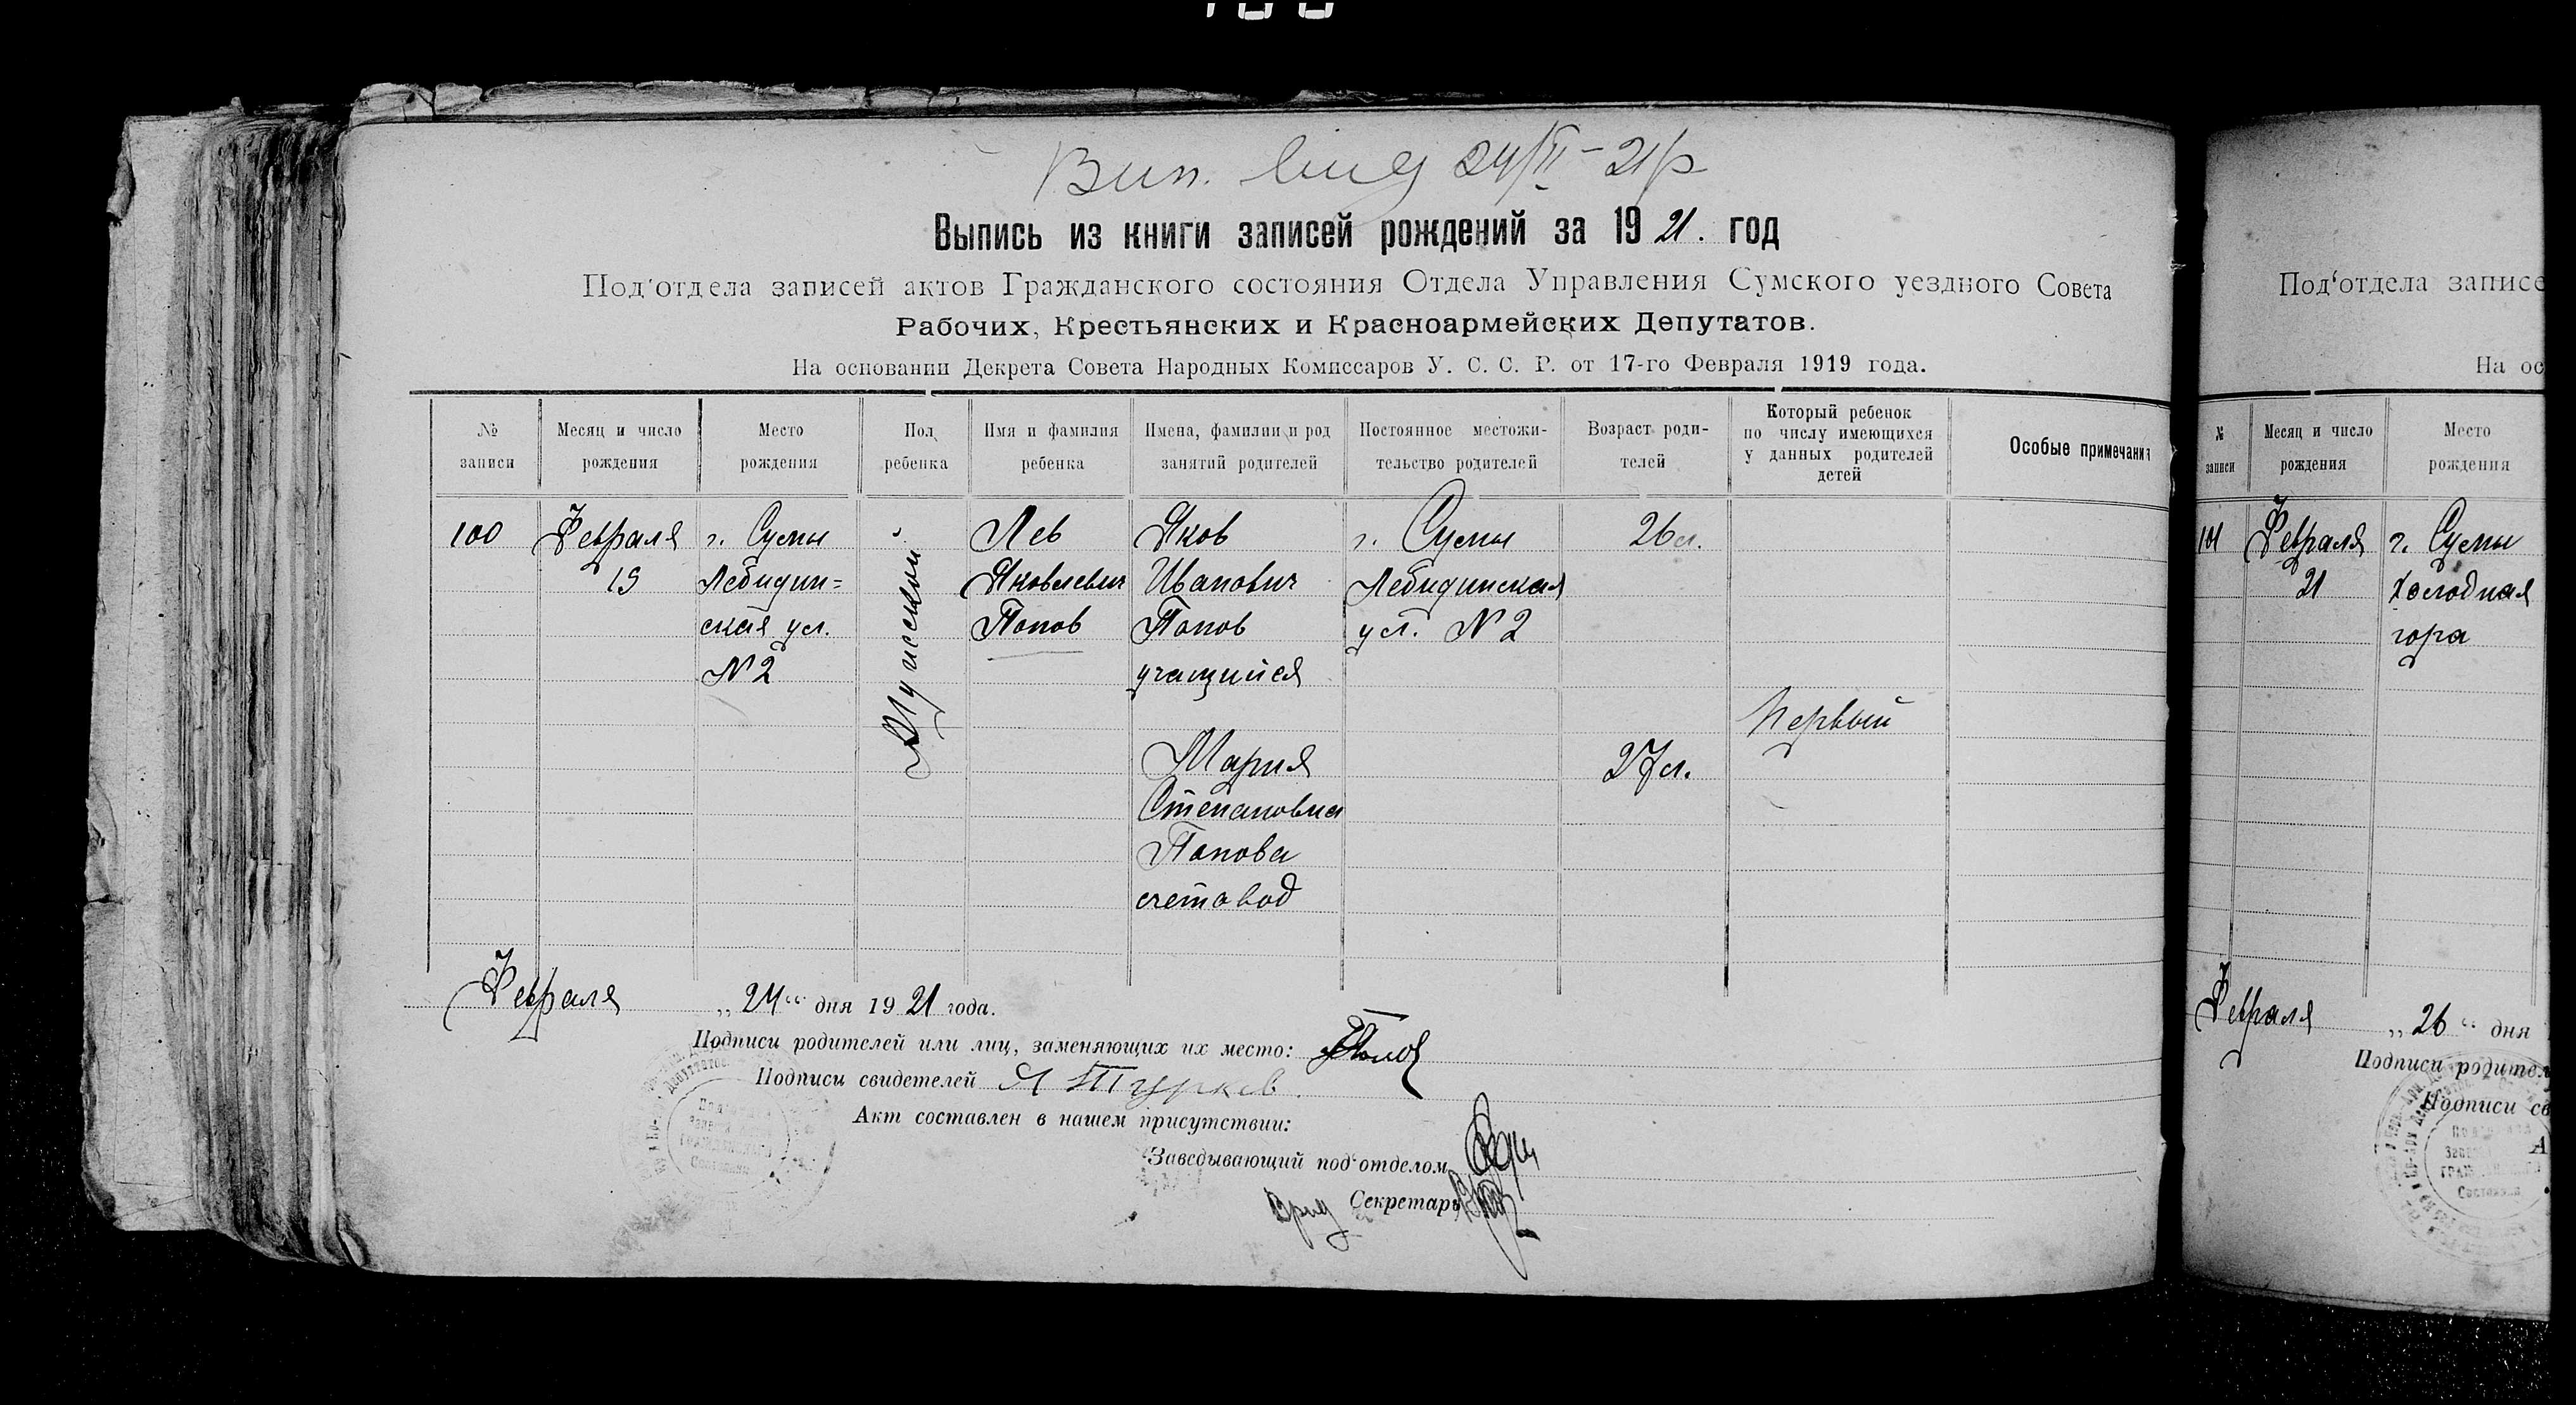 Вип. вид 24/II-21р
Выпись из книги записей рождений за 1921. год
Под'отдела записей актов Гражданского состояния Отдела Управления Сумского уездного Совета
Рабочих, Крестьянских и Красноармейских Депутатов.
На основании Декрета Совета Народных Комиссаров У. С. С. Р. от 17-го Февраля 1919 года.
№ записи
Месяц и число рождения
Место рождения
Пол ребенка
Имя и фамилия ребенка
Имена, фамилии и род занятий родителей
Постоянное местожительство родителей
Возраст родителей
Который ребенок по числу имеющихся у данных родителей детей
Особые примечания
100
Февраля
19
г. Сумы
Лебидин=
ская ул.
N 2
Мужской
Лев
Яковлевич
Попов
Яков
Иванович
Попов
учащийся
Мария
Степановна
Попова
счетовод
г. Сумы
Лебидинская
ул. N 2
26 л.
27 л.
Первый
Февраля „24“ дня 1921 года.
Подписи родителей или лиц, заменяющих их место: Попов
Подписи свидетелей
Акт составлен в нашем присутствии:
Заведывающий под'отделом
Врид Секретарь
Под'отдела записе
На ос
№ записи
Месяц и число рождения
Место рождения
101
Февраля
21
г. Сумы
Холодная
гора
Февраля „26“ дня
Подписи родител
Подписи св
А